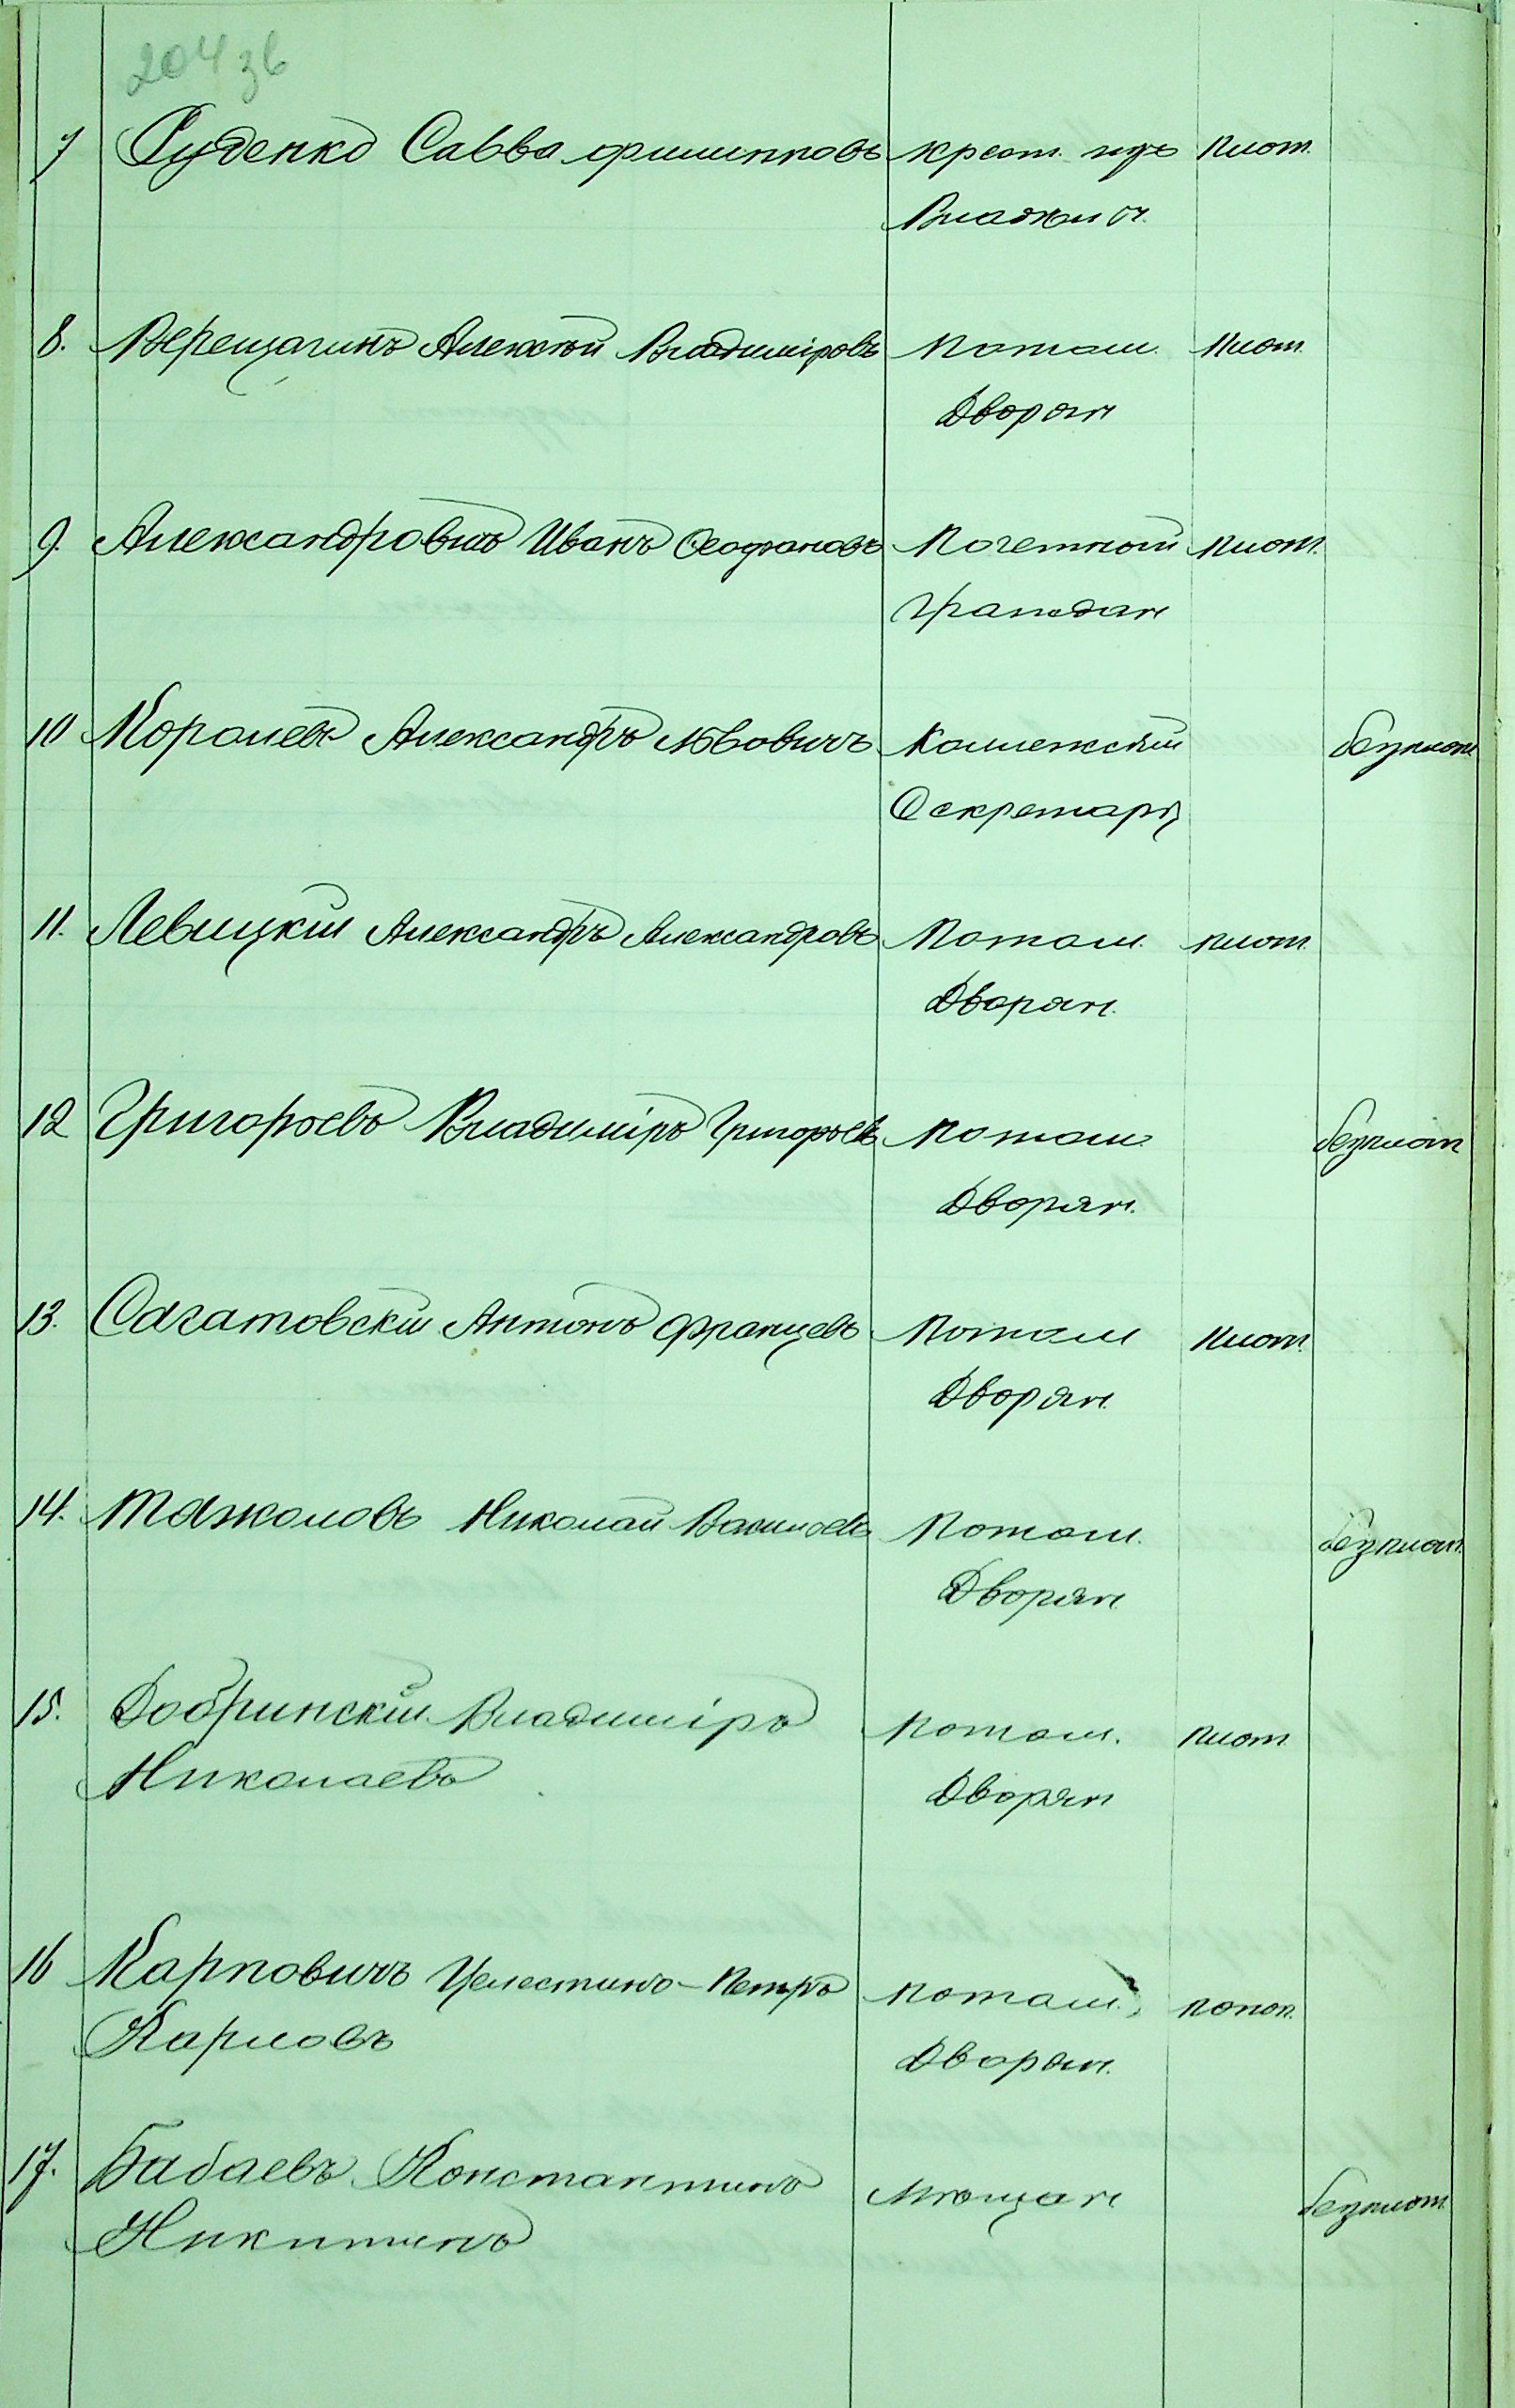 204 зв
7 Руденко Савва Филипповъ крест. изъ плат.
8. Верещагинъ Алексѣй Владиміровъ Потом. плат.
Дворян
9. Александровичъ Иванъ Феофановъ Почетной плат.
граждан
10 Королевъ Александръ Львовичъ Коллежскій безплат.
Секретарь
11. Левицкій Александръ Александровъ Потом. плат.
Дворян.
12 Григорьевъ Владиміръ Григорьевъ Потом. безплат
Дворян.
13. Сагатовскій Антонъ Францевъ Потом плат.
Дворян.
14. Тяжоловъ Николай Васильевъ Потом. безплат.
Дворян
15. Добринскій Владиміръ
потом. плат.
Николаевъ
Дворян
16 Карповичъ Целестинъ-Петръ потом.
Карловъ
Дворян.
17. Бабаевъ Константинъ мѣщан безплат.
Никитинъ